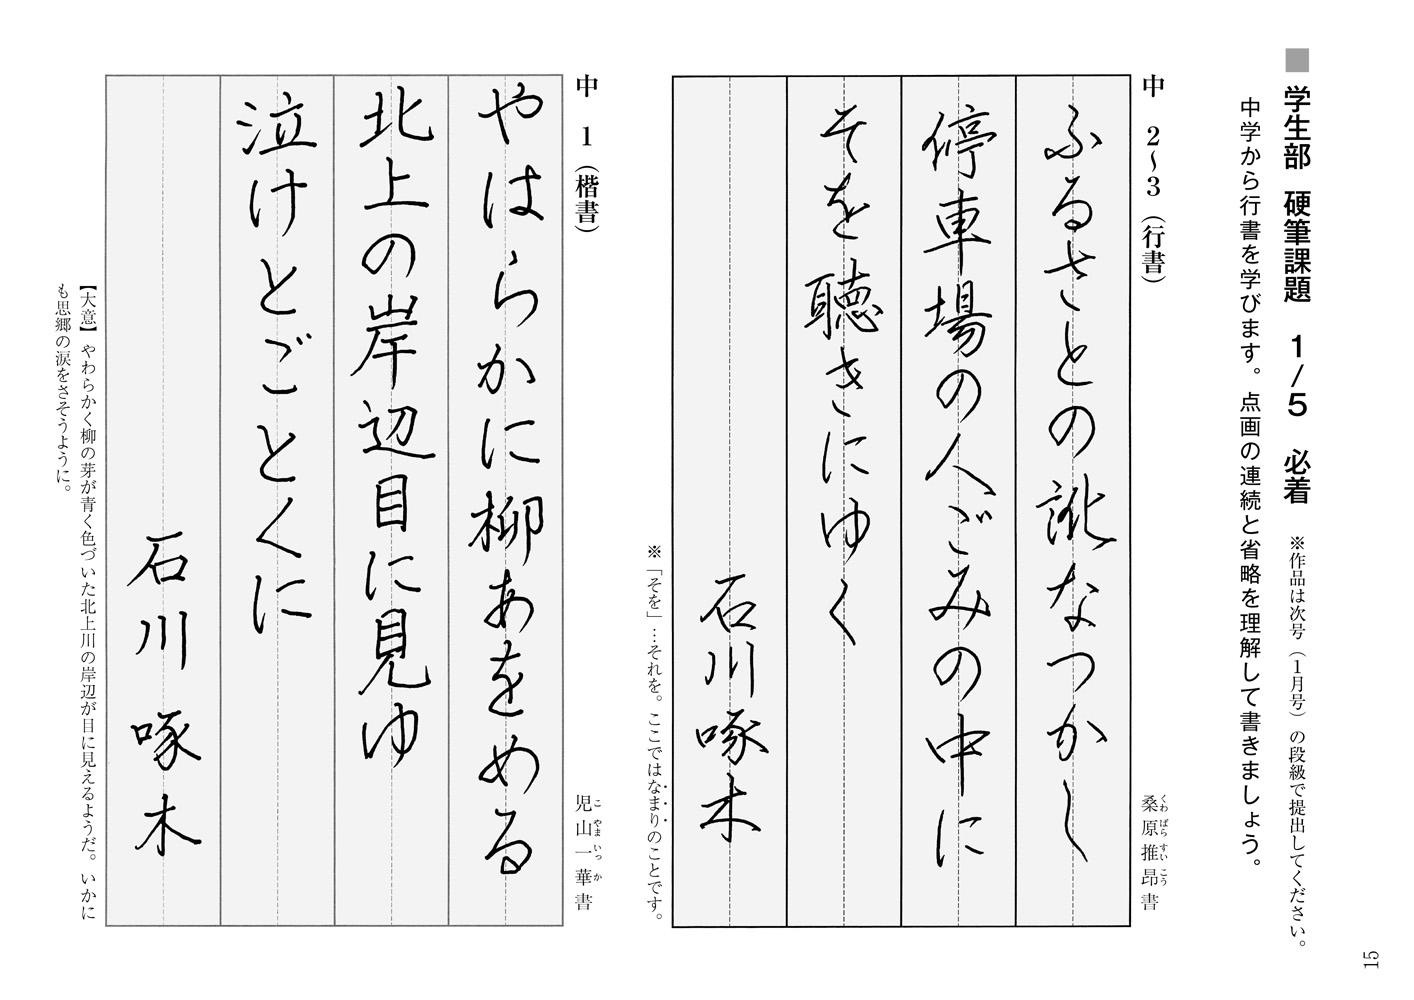 ■学生部 硬筆課題 1/5 必着 ※作品は次号(1月号)の段級で提出してください。
中学から行書を学びます。点画の連続と省略を理解して書きましょう。
中 2～3(行書)
桑原推昂書
くわ ばら すい こう
ふるさとの訛なつかし
停車場の人ごみの中に
そを聴きにゆく
石川啄木
※「そを」…それを。ここではなまりのことです。
中 1(楷書)
児山一華書
こ やま いっ か
やはらかに柳あをめる
北上の岸辺目に見ゆ
泣けとごとくに
石川啄木
【大意】やわらかく柳の芽が青く色づいた北上川の岸辺が目に見えるようだ。いかに
も思郷の涙をさそうように。
15